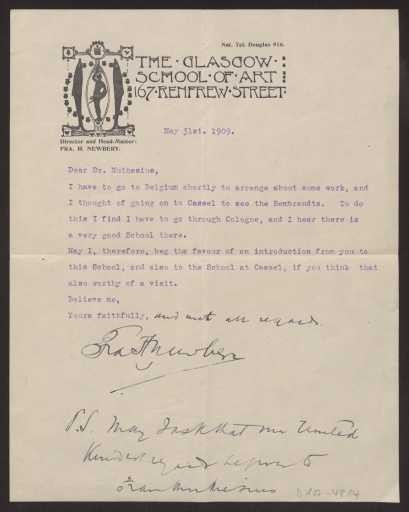 Nat. Tel. Douglas 916.
THE · GLASGOW ·
SCHOOL · OF · ART
167 · RENFREW · STREET
Director and Head-Master:
FRA. H. NEWBERY.
May 31st. 1909.
Dear Dr. Muthesius,
I have to go to Belgium shortly to arrange about some work, and
I thought of going on to Cassel to see the Rembrandts. To do
this I find I have to go through Cologne, and I hear there is
a very good School there.
May I, therefore, beg the favour of an introduction from you to
this School, and also to the School at Cassel, if you think that
also worthy of a visit.
Believe me,
Yours faithfully, and with all regards.
Fra H Newbery
P.S. May I ask that our United
Kindest regards be given to
Frau Muthesius